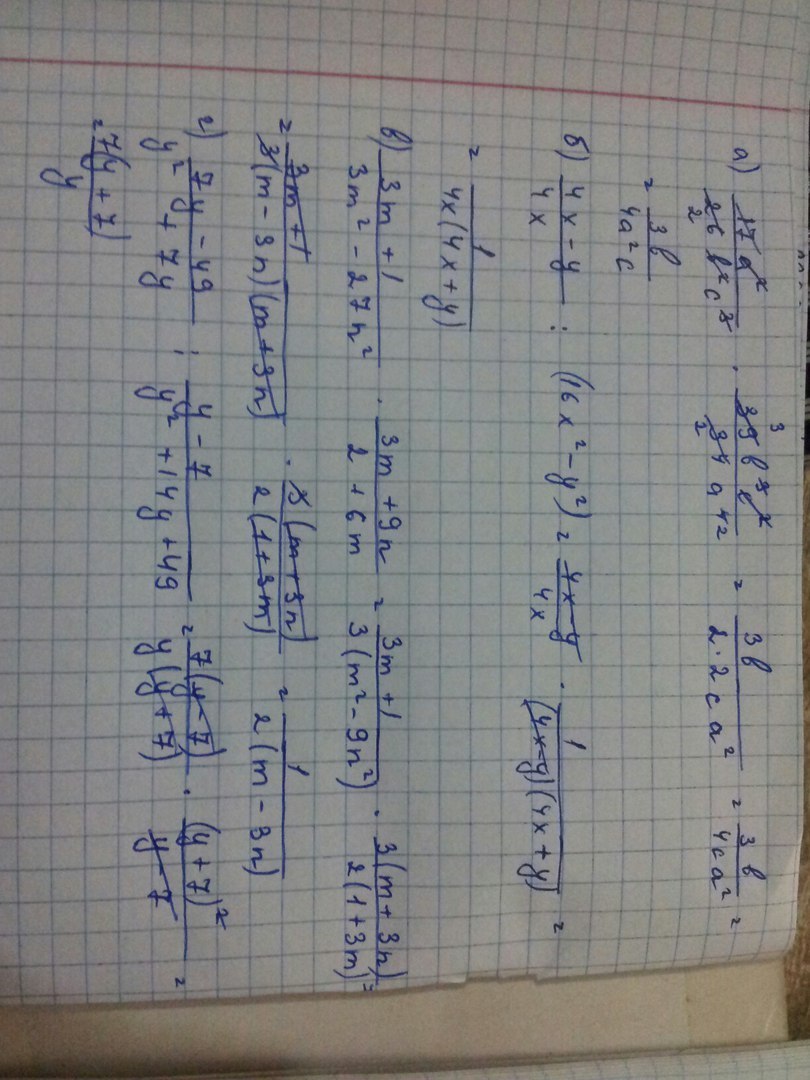 а) 17a² / 26b²c³ · 39b³c² / 34a⁴ = 3b / 2·2ca² = 3b / 4ca² =
= 3b / 4a²c
б) 4x-y / 4x : (16x²-y²) = 4x-y / 4x · 1 / (4x-y)(4x+y) =
= 1 / 4x(4x+y)
в) 3m+1 / 3m²-27n² · 3m+9n / 2+6m = 3m+1 / 3(m²-9n²) · 3(m+3n) / 2(1+3m) =
= 3m+1 / 3(m-3n)(m+3n) · 3(m+3n) / 2(1+3m) = 1 / 2(m-3n)
г) 7y-49 / y²+7y : y-7 / y²+14y+49 = 7(y-7) / y(y+7) · (y+7)² / y-7 =
= 7(y+7) / y